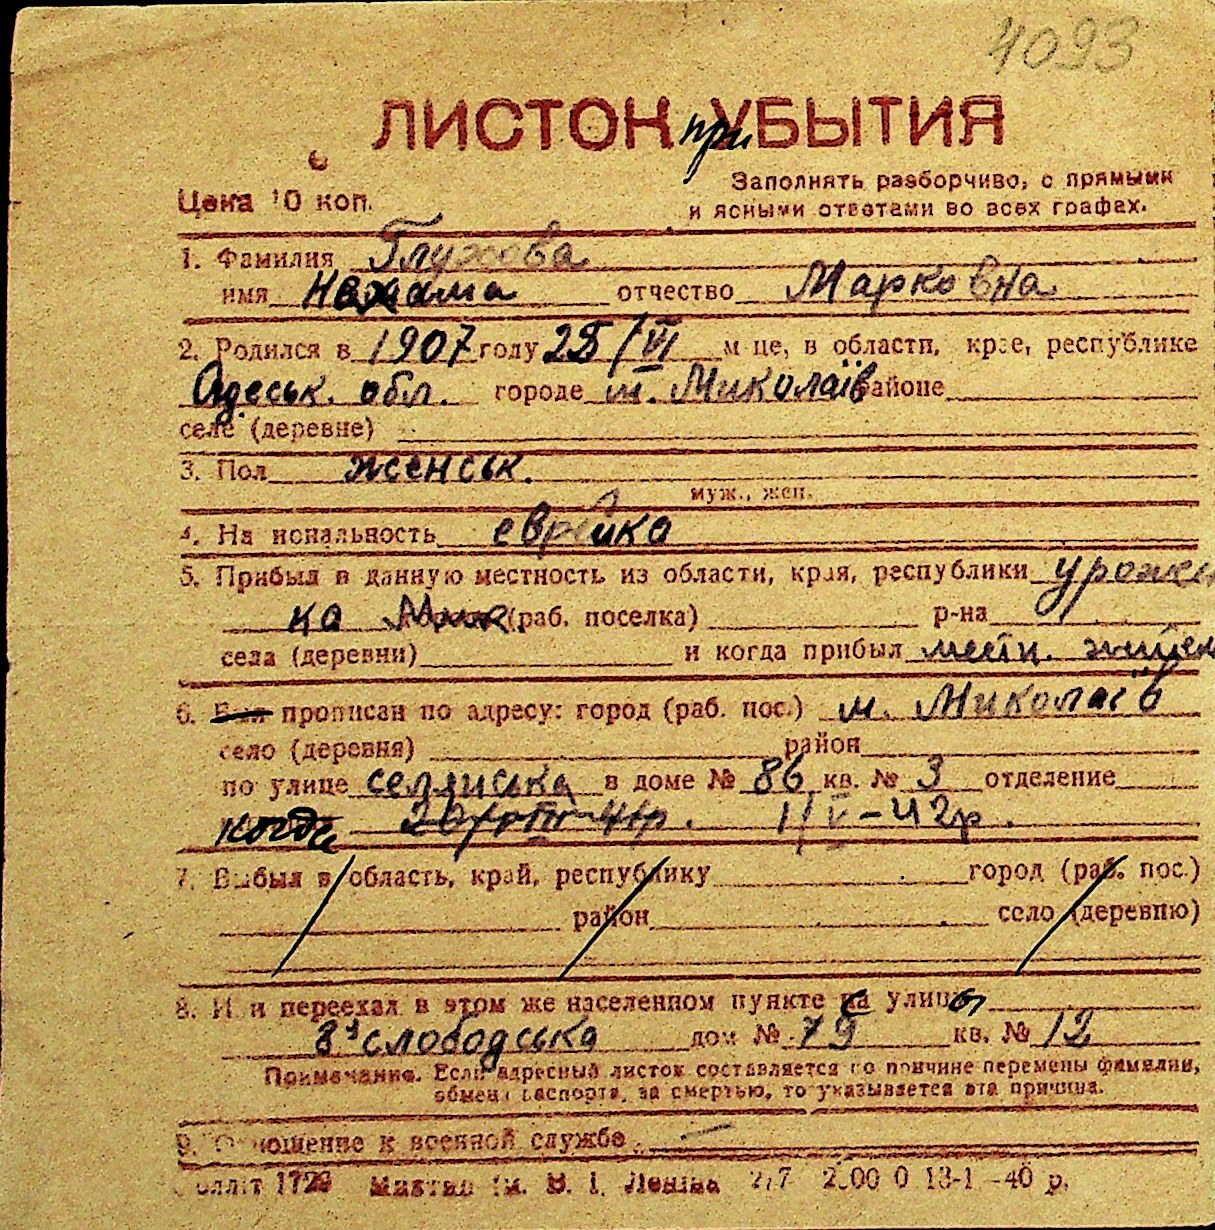 4093
ЛИСТОК при УБЫТИЯ
Цена 10 коп.
Заполнять разборчиво, с прямыми
и ясными ответами во всех графах.
1. Фамилия Глухова
имя Нехама отчество Марковна
2. Родился в 1907 году 25/VI м-це, в области, крае, республике
Одеськ. обл. городе м. Миколаїв районе
селе (деревне)
3. Пол женськ.
муж., жен.
4. Национальность еврейка
5. Прибыл в данную местность из области, края, республики урожен
ка Мик. (раб. поселка) р-на
села (деревни) и когда прибыл местн. жител
6. прописан по адресу: город (раб. пос.) м. Миколаїв
село (деревня) район
по улице селянська в доме № 86 кв. № 3 отделение
когда 1/V-42р.
7. Выбыл в область, край, республику город (раб. пос.)
район село (деревню)
8. Или переехал в этом же населенном пункте с улицы
8ª слободська дом № 79 кв. № 12
Примечание. Если адресный листок составляется по причине перемены фамилии,
обмена паспорта, за смертью, то указывается эта причина.
9. Отношение к военной службе —
1729 им. В. І. Леніна 13-1-40 р.